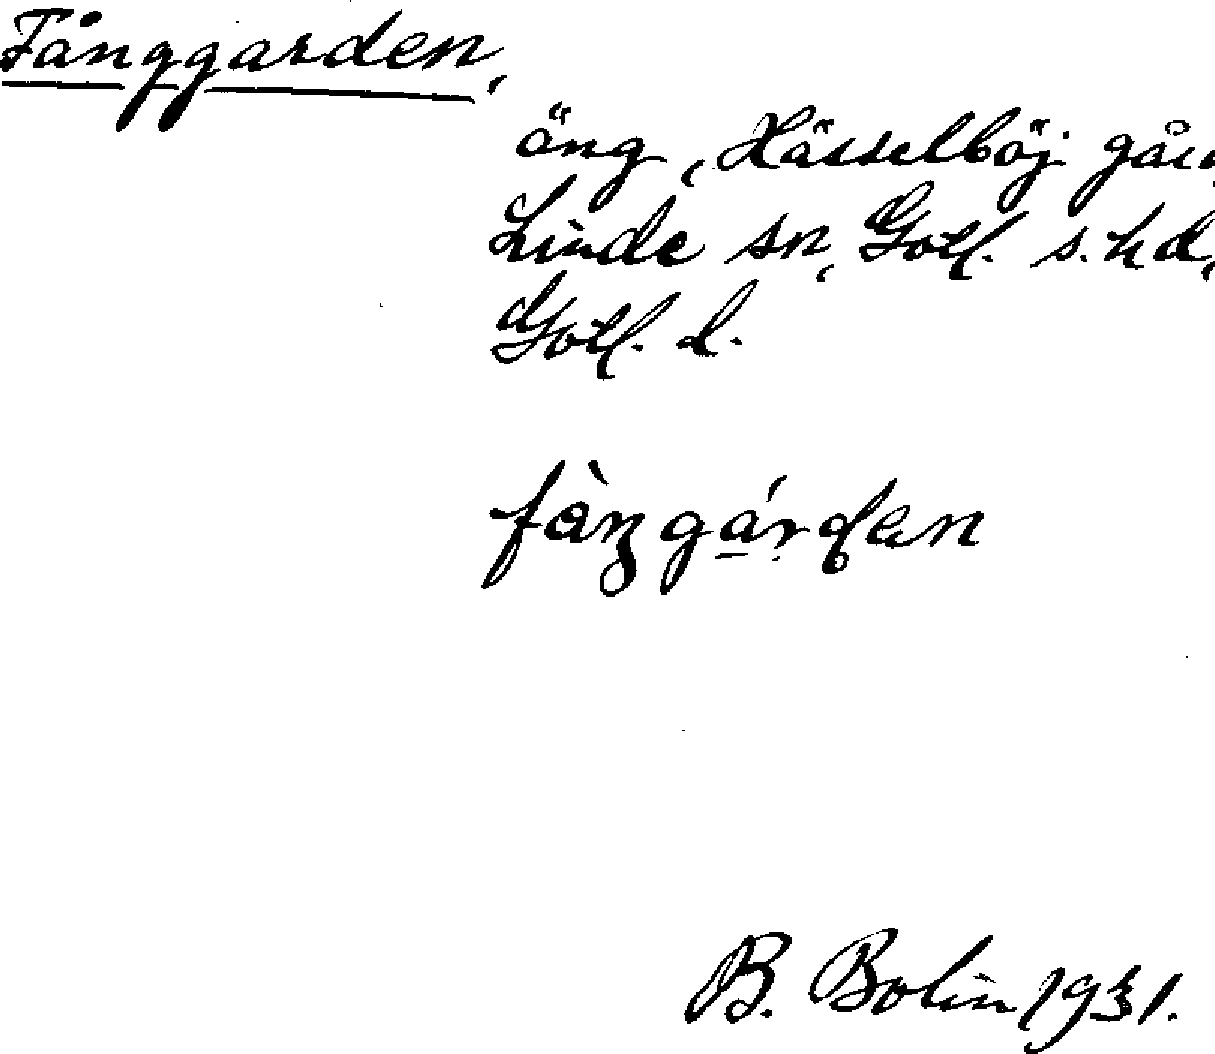 Fånggarden,
äng, Hässelböj gård,
Linde sn, Gotl. s. hd,
Gotl. l.
fàŋgárdən
B. Bolin 1931.